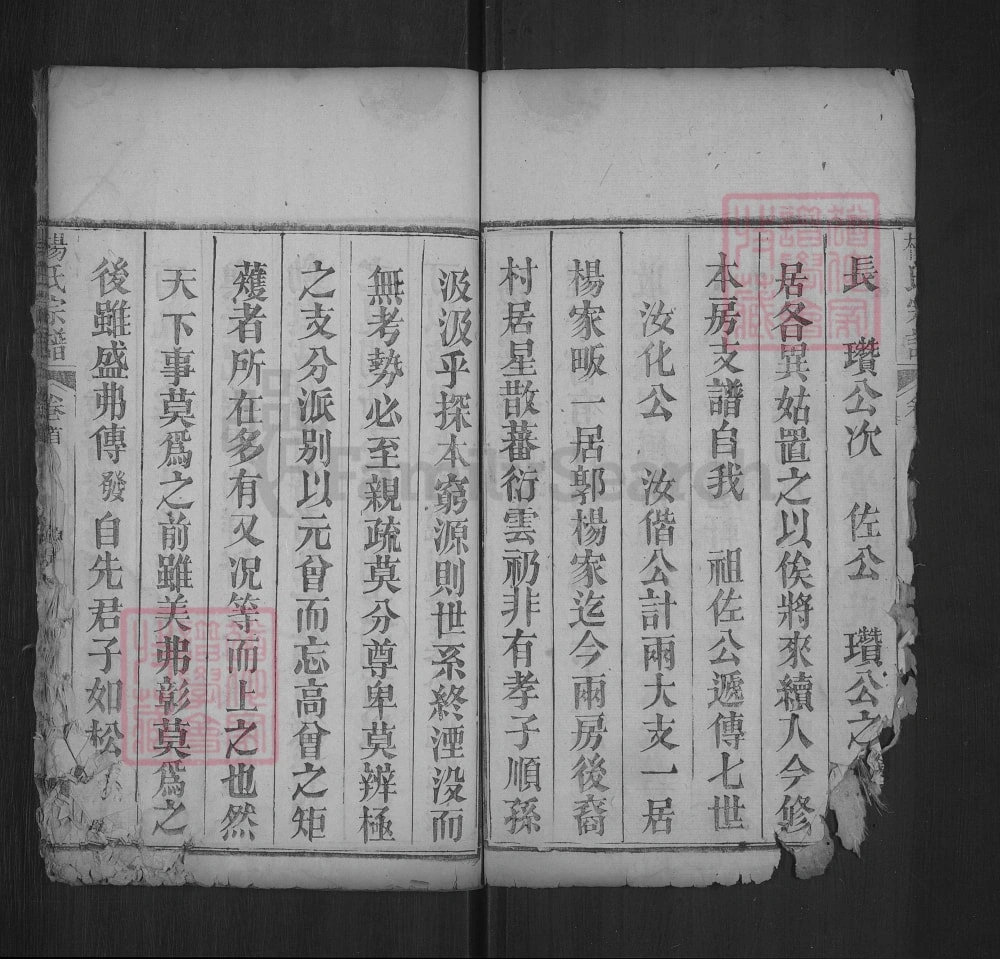 長　瓚公次　佐公　瓚公之
居各異姑置之以俟將來續入今修
本房支譜自我　祖佐公遞傳七世
汝化公　汝偕公計兩大支一居
楊家畈一居郭楊家迄今兩房後裔
村居星散蕃衍雲礽非有孝子順孫
汲汲乎探本窮源則世系終湮没而
無考勢必至親疏莫分尊卑莫辨極
之支分派別以元曾而忘高曾之矩
䕶者所在多有又况等而上之也然
天下事莫爲之前雖美弗彰莫爲之
後雖盛弗傳發自先君子如松
楊氏宗譜　卷首
FamilySearch